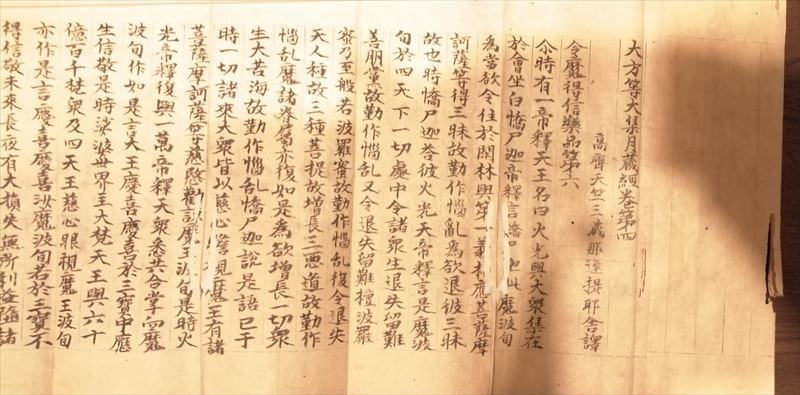 大方等大集月藏經卷第四
高齊天竺三藏那連提耶舍譯
令魔得信樂品第六
尒時有一帝釋天王名曰火光與大衆集在
於會坐白憍尸迦帝釋言憍尸迦此魔波旬
為當欲令住於閑林與第一義相應菩薩摩
訶薩等得三昧故勤作惱亂為欲退彼三昧
故也時憍尸迦荅彼火光天帝釋言是魔波
旬於四天下一切處中令諸衆生退失留難
善朋黨故勤作惱乱又令退失留難檀波羅
蜜乃至般若波羅蜜故勤作惱乱復令退失
天人種故三種菩提故增長三惡道故勤作
惱乱魔諸眷屬亦復如是為欲增長一切衆
生大苦海故勤作惱乱憍尸迦說是語已于
時一切諸來大衆皆以慈心瞻視魔王有諸
菩薩摩訶薩等慈愍勸諫魔王波旬是時火
光帝釋復與一萬帝釋天衆悉共合掌向魔
波旬作如是言大王應喜應喜於三寶中應
生信敬是時娑婆世界主大梵天王與六十
億百千梵衆及四天王慈心眼視魔王波旬
亦作是言應喜應喜汝魔波旬若於三寶不
得信敬未來長夜有大損失無所利益隨諸